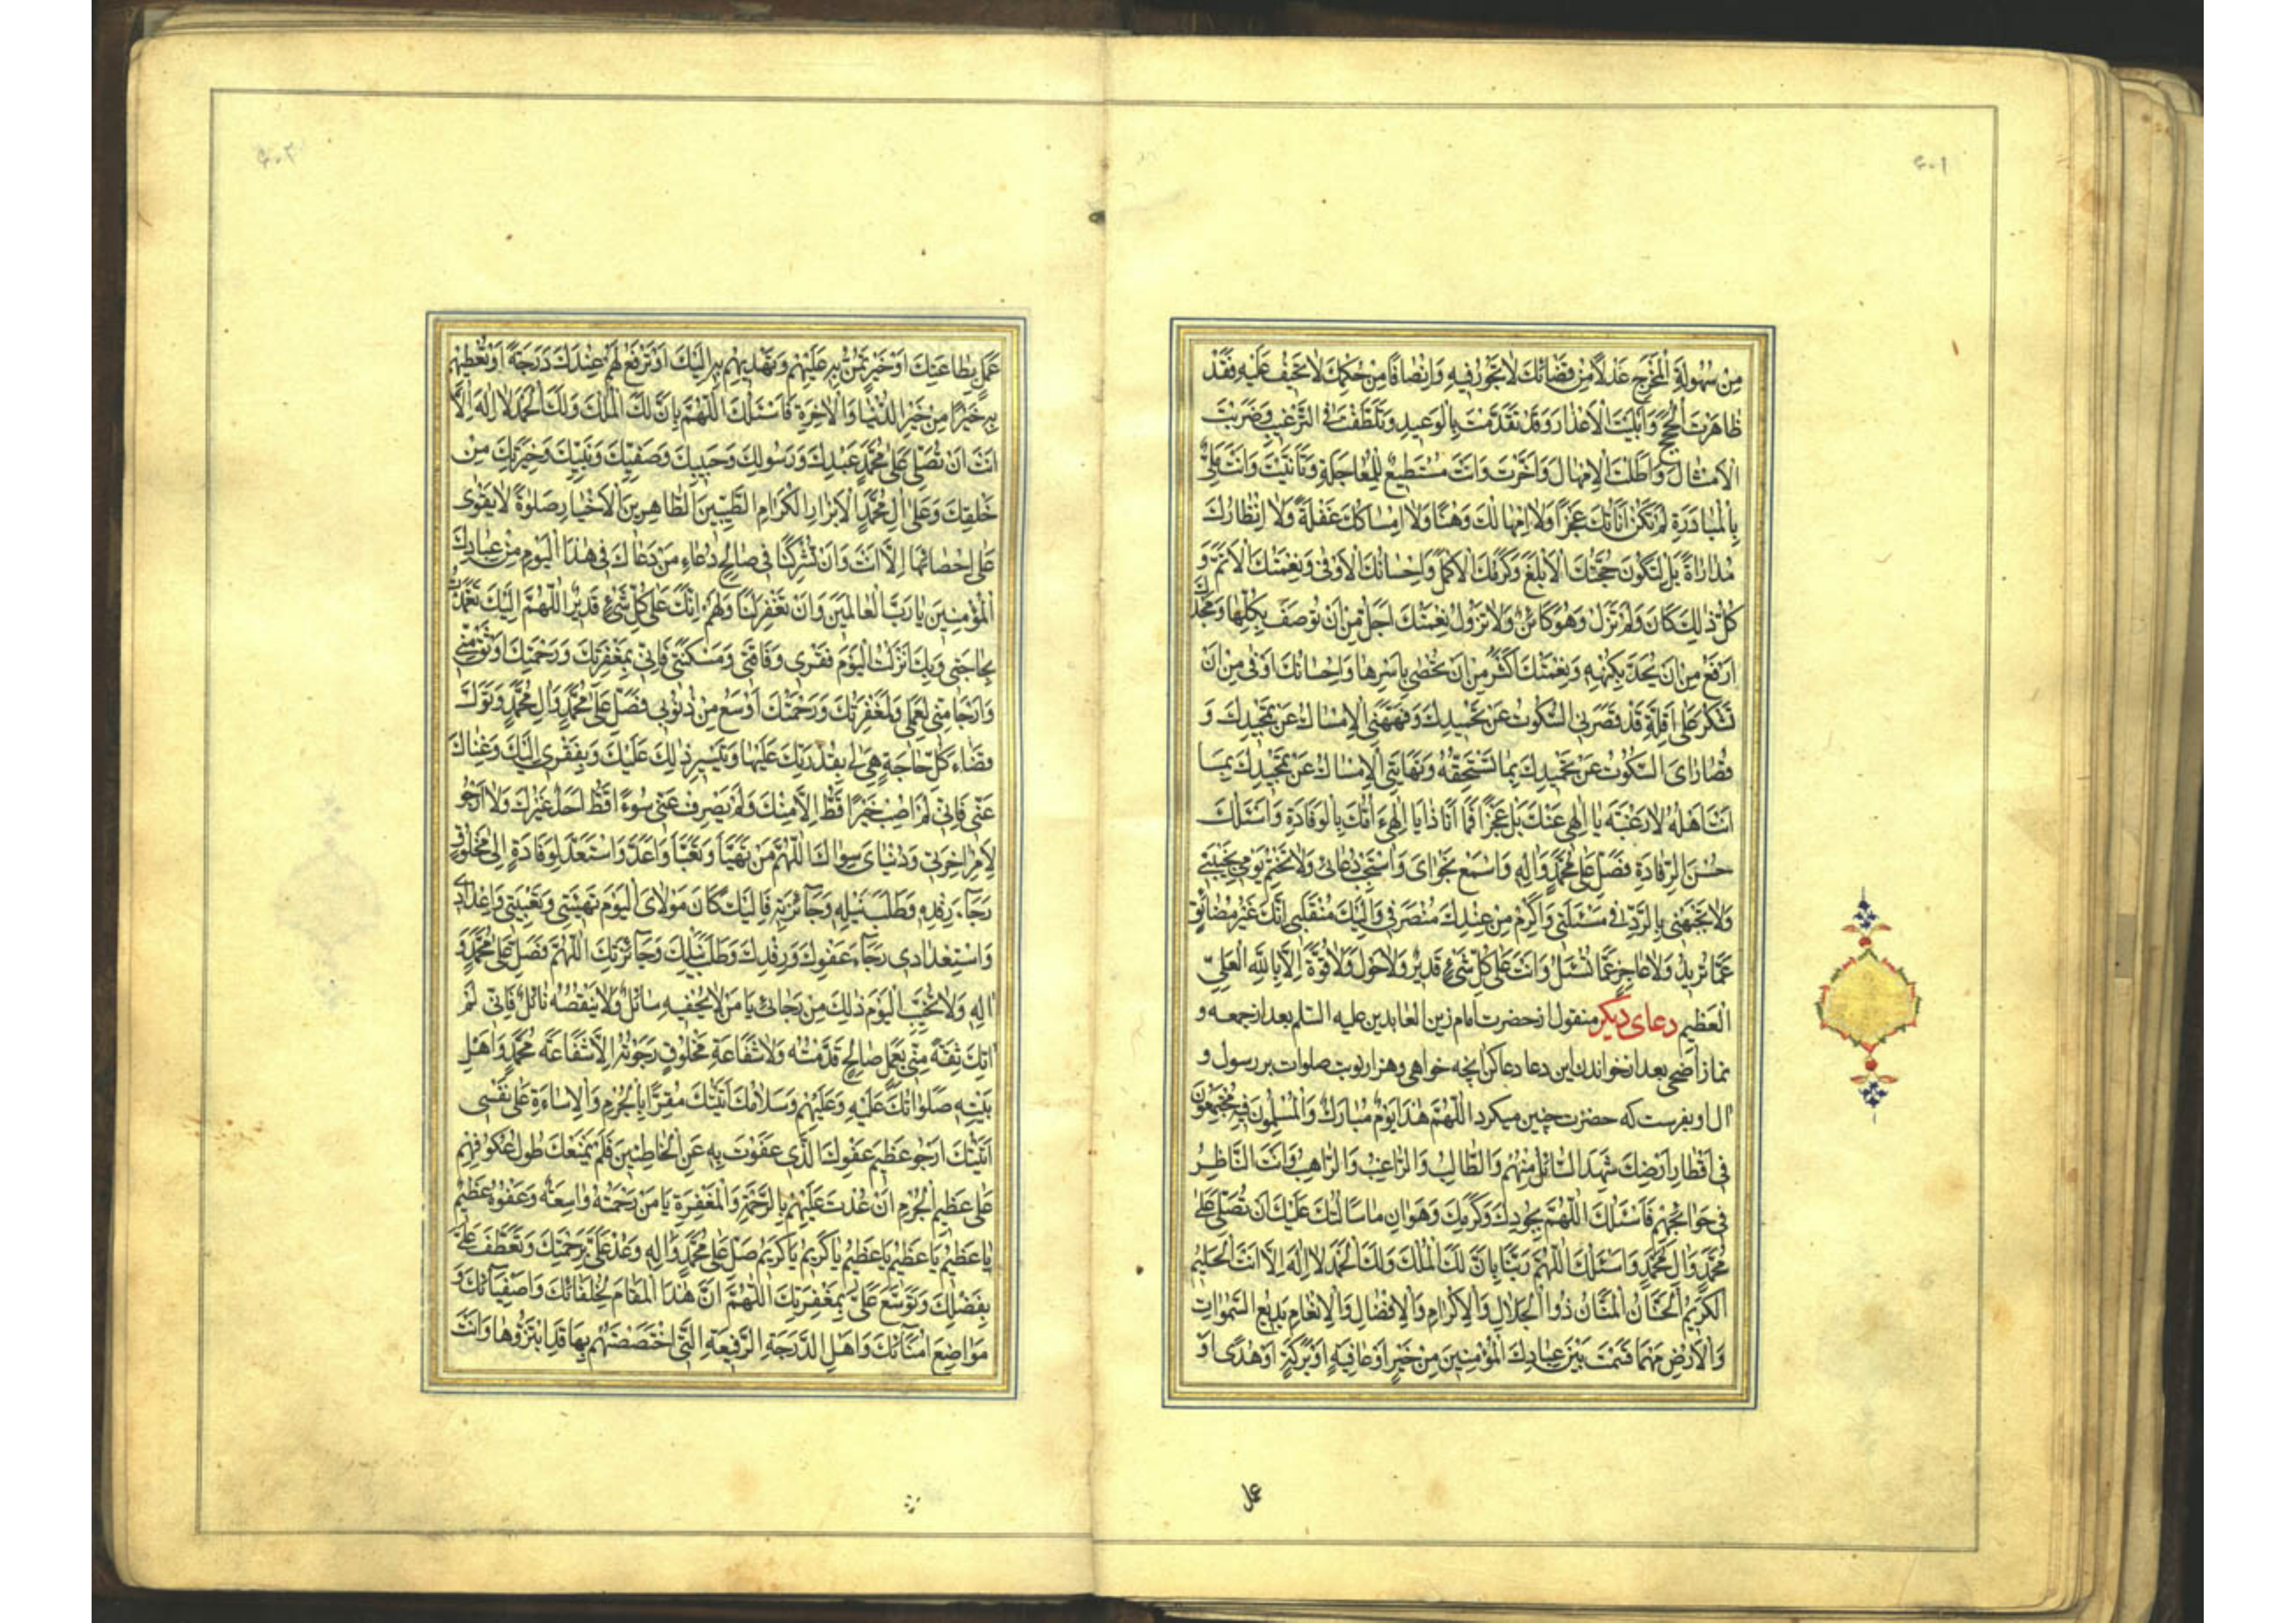 ۶۰۱
مِن سُهُولَةِ الْمَخْرَجِ عَدْلًا مِن قَضَائِكَ لَا تَجُورُ فِيهِ وَاِنْصَافًا مِن حُكْمِكَ لَا تَحِيفُ عَلَيْهِ فَقَدْ
ظَاهَرْتَ الْحُجَجَ وَاَبْلَيْتَ الْاَعْذَارَ وَقَدْ تَقَدَّمْتَ بِالْوَعِيدِ وَتَلَطَّفْتَ فِى التَّرْغِيبِ وَضَرَبْتَ
الْاَمْثَالَ وَاَطَلْتَ الْاِمْهَالَ وَاَخَّرْتَ وَاَنْتَ مُسْتَطِيعٌ لِلْمُعَاجَلَةِ وَتَاَنَّيْتَ وَاَنْتَ مَلِىٌّ
بِالْمُبَادَرَةِ لَمْ تَكُنْ اَنَاتُكَ عَجْزًا وَلَا اِمْهَالُكَ وَهْنًا وَلَا اِمْسَاكُكَ غَفْلَةً وَلَا اِنْتِظَارُكَ
مُدَارَاةً بَلْ لِتَكُونَ حُجَّتُكَ الْاَبْلَغَ وَكَرَمُكَ الْاَكْمَلَ وَاِحْسَانُكَ الْاَوْفَى وَنِعْمَتُكَ الْاَتَمَّ وَ
كُلُّ ذَلِكَ كَانَ وَلَمْ تَزَلْ وَهُوَ كَائِنٌ وَلَا تَزُولُ نِعْمَتُكَ اَجَلُّ مِنْ اَنْ تُوصَفَ بِكُلِّهَا وَمَجْدُكَ
اَرْفَعُ مِنْ اَنْ يُحَدَّ بِكُنْهِهِ وَنِعْمَتُكَ اَكْثَرُ مِنْ اَنْ تُحْصَى بِاَسْرِهَا وَاِحْسَانُكَ اَوْفَى مِنْ اَنْ
تُشْكَرَ عَلَى اَقَلِّهِ قَدْ قَصَّرَ بِىَ السُّكُوتُ عَنْ تَحْمِيدِكَ وَفَهَّهَنِىَ الْاِمْسَاكُ عَنْ تَمْجِيدِكَ وَ
قُصَارَاىَ السُّكُوتُ عَنْ تَحْمِيدِكَ بِمَا تَسْتَحِقُّهُ وَنِهَايَتِى الْاِمْسَاكُ عَنْ تَمْجِيدِكَ بِمَا
اَنْتَ اَهْلُهُ لَا رَغْبَةً يَا اِلٰهِى عَنْكَ بَلْ عَجْزًا فَمَا اَنَا ذَا يَا اِلٰهِى اَؤُمُّكَ بِالْوِفَادَةِ وَاَسْئَلُكَ
حُسْنَ الرِّفَادَةِ فَصَلِّ عَلَى مُحَمَّدٍ وَاٰلِهِ وَاسْمَعْ نَجْوَاىَ وَاسْتَجِبْ دُعَائِى وَلَا تَخْتِمْ يَوْمِى بِخَيْبَتِى
وَلَا تَجْبَهْنِى بِالرَّدِّ فِى مَسْئَلَتِى وَاَكْرِمْ مِنْ عِنْدِكَ مُنْصَرَفِى وَاِلَيْكَ مُنْقَلَبِى اِنَّكَ غَيْرُ مَضَائِقٍ
عَمَّا تُرِيدُ وَلَا عَاجِزٍ عَمَّا تُسْئَلُ وَاَنْتَ عَلَى كُلِّ شَىْءٍ قَدِيرٌ وَلَا حَوْلَ وَلَا قُوَّةَ اِلَّا بِاللّٰهِ الْعَلِىِّ
الْعَظِيمِ دعاى ديگر منقول از حضرت امام زين العابدين عليه السّلم بعد از جمعه و
نماز اضحى بعد از خواندن اين دعا دعا كن آنچه خواهى و هزار نوبت صلوات بر رسول و
آل او بفرست كه حضرت چنين ميكرد اَللّٰهُمَّ هٰذَا يَوْمٌ مُبَارَكٌ وَالْمُسْلِمُونَ فِيهِ مُجْتَمِعُونَ
فِى اَقْطَارِ اَرْضِكَ يَشْهَدُ السَّائِلُ مِنْهُمْ وَالطَّالِبُ وَالرَّاغِبُ وَالرَّاهِبُ وَاَنْتَ النَّاظِرُ
فِى حَوَائِجِهِمْ فَاَسْئَلُكَ اللّٰهُمَّ بِجُودِكَ وَكَرَمِكَ وَهَوَانِ مَا سَاَلْتُكَ عَلَيْكَ اَنْ تُصَلِّىَ عَلَى
مُحَمَّدٍ وَاٰلِ مُحَمَّدٍ وَاَسْئَلُكَ اللّٰهُمَّ رَبَّنَا بِاَنَّ لَكَ الْمُلْكَ وَلَكَ الْحَمْدَ لَا اِلٰهَ اِلَّا اَنْتَ الْحَلِيمُ
الْكَرِيمُ الْحَنَّانُ الْمَنَّانُ ذُو الْجَلَالِ وَالْاِكْرَامِ وَالْاِفْضَالِ وَالْاِنْعَامِ بَدِيعُ السَّمٰوَاتِ
وَالْاَرْضِ مَهْمَا قَسَمْتَ بَيْنَ عِبَادِكَ الْمُؤْمِنِينَ مِنْ خَيْرٍ اَوْ عَافِيَةٍ اَوْ بَرَكَةٍ اَوْ هُدًى اَوْ
عمل
۶۰۲
عَمَلٍ بِطَاعَتِكَ اَوْ خَيْرٍ تَمُنُّ بِهِ عَلَيْهِمْ وَتَهْدِيهِمْ بِهِ اِلَيْكَ اَوْ تَرْفَعُ لَهُمْ عِنْدَكَ دَرَجَةً اَوْ تُعْطِيهِمْ
بِهِ خَيْرًا مِنْ خَيْرِ الدُّنْيَا وَالْاٰخِرَةِ فَاَسْئَلُكَ اللّٰهُمَّ بِاَنَّ لَكَ الْمُلْكَ وَلَكَ الْحَمْدَ لَا اِلٰهَ اِلَّا
اَنْتَ اَنْ تُصَلِّىَ عَلَى مُحَمَّدٍ عَبْدِكَ وَرَسُولِكَ وَحَبِيبِكَ وَصَفِيِّكَ وَنَبِيِّكَ وَخِيَرَتِكَ مِنْ
خَلْقِكَ وَعَلَى اٰلِ مُحَمَّدٍ الْاَبْرَارِ الْكِرَامِ الطَّيِّبِينَ الطَّاهِرِينَ الْاَخْيَارِ صَلٰوةً لَا يَقْوَى
عَلَى اِحْصَائِهَا اِلَّا اَنْتَ وَاَنْ تُشْرِكَنَا فِى صَالِحِ دُعَاءِ مَنْ دَعَاكَ فِى هٰذَا الْيَوْمِ مِنْ عِبَادِكَ
الْمُؤْمِنِينَ يَا رَبَّ الْعَالَمِينَ وَاَنْ تَغْفِرَ لَنَا وَلَهُمْ اِنَّكَ عَلَى كُلِّ شَىْءٍ قَدِيرٌ اَللّٰهُمَّ اِلَيْكَ تَعَمَّدْتُ
بِحَاجَتِى وَبِكَ اَنْزَلْتُ الْيَوْمَ فَقْرِى وَفَاقَتِى وَمَسْكَنَتِى فَاِنِّى بِمَغْفِرَتِكَ وَرَحْمَتِكَ اَوْثَقُ مِنِّى
وَاَرْجَا مِنِّى لِعَمَلِى وَلَمَغْفِرَتُكَ وَرَحْمَتُكَ اَوْسَعُ مِنْ ذُنُوبِى فَصَلِّ عَلَى مُحَمَّدٍ وَاٰلِ مُحَمَّدٍ وَتَوَلَّ
قَضَاءَ كُلِّ حَاجَةٍ هِىَ لِى بِقُدْرَتِكَ عَلَيْهَا وَتَيْسِيرِ ذٰلِكَ عَلَيْكَ وَبِفَقْرِى اِلَيْكَ وَغِنَاكَ
عَنِّى فَاِنِّى لَمْ اُصِبْ خَيْرًا قَطُّ اِلَّا مِنْكَ وَلَمْ يَصْرِفْ عَنِّى سُوءًا قَطُّ اَحَدٌ غَيْرُكَ وَلَا اَرْجُو
لِاَمْرِ اٰخِرَتِى وَدُنْيَاىَ سِوَاكَ اَللّٰهُمَّ مَنْ تَهَيَّاَ وَتَعَبَّاَ وَاَعَدَّ وَاسْتَعَدَّ لِوِفَادَةٍ اِلَى مَخْلُوقٍ
رَجَاءَ رِفْدِهِ وَطَلَبَ نَيْلِهِ وَجَائِزَتِهِ فَاِلَيْكَ كَانَ مَوْلَاىَ الْيَوْمَ تَهْيِئَتِى وَتَعْبِيَتِى وَاِعْدَادِى
وَاسْتِعْدَادِى رَجَاءَ عَفْوِكَ وَرِفْدِكَ وَطَلَبَ نَيْلِكَ وَجَائِزَتِكَ اَللّٰهُمَّ فَصَلِّ عَلَى مُحَمَّدٍ وَ
اٰلِهِ وَلَا تُخَيِّبِ الْيَوْمَ ذٰلِكَ مِنْ رَجَائِى يَا مَنْ لَا يُحْفِيهِ سَائِلٌ وَلَا يَنْقُصُهُ نَائِلٌ فَاِنِّى لَمْ
اٰتِكَ ثِقَةً مِنِّى بِعَمَلٍ صَالِحٍ قَدَّمْتُهُ وَلَا شَفَاعَةِ مَخْلُوقٍ رَجَوْتُهُ اِلَّا شَفَاعَةَ مُحَمَّدٍ وَاَهْلِ
بَيْتِهِ صَلَوَاتُكَ عَلَيْهِ وَعَلَيْهِمْ وَسَلَامُكَ اَتَيْتُكَ مُقِرًّا بِالْجُرْمِ وَالْاِسَاءَةِ عَلَى نَفْسِى
اَتَيْتُكَ اَرْجُو عَظِيمَ عَفْوِكَ الَّذِى عَفَوْتَ بِهِ عَنِ الْخَاطِئِينَ فَلَمْ يَمْنَعْكَ طُولُ عُكُوفِهِمْ
عَلَى عَظِيمِ الْجُرْمِ اَنْ عُدْتَ عَلَيْهِمْ بِالرَّحْمَةِ وَالْمَغْفِرَةِ يَا مَنْ رَحْمَتُهُ وَاسِعَةٌ وَعَفْوُهُ عَظِيمٌ
يَا عَظِيمُ يَا عَظِيمُ يَا عَظِيمُ يَا كَرِيمُ يَا كَرِيمُ صَلِّ عَلَى مُحَمَّدٍ وَاٰلِهِ وَعُدْ عَلَىَّ بِرَحْمَتِكَ وَتَعَطَّفْ عَلَىَّ
بِفَضْلِكَ وَتَوَسَّعْ عَلَىَّ بِمَغْفِرَتِكَ اَللّٰهُمَّ اِنَّ هٰذَا الْمَقَامَ لِخُلَفَائِكَ وَاَصْفِيَائِكَ وَ
مَوَاضِعَ اُمَنَائِكَ وَاَهْلِ الدَّرَجَةِ الرَّفِيعَةِ الَّتِى اخْتَصَصْتَهُمْ بِهَا قَدِ ابْتَزُّوهَا وَاَنْتَ